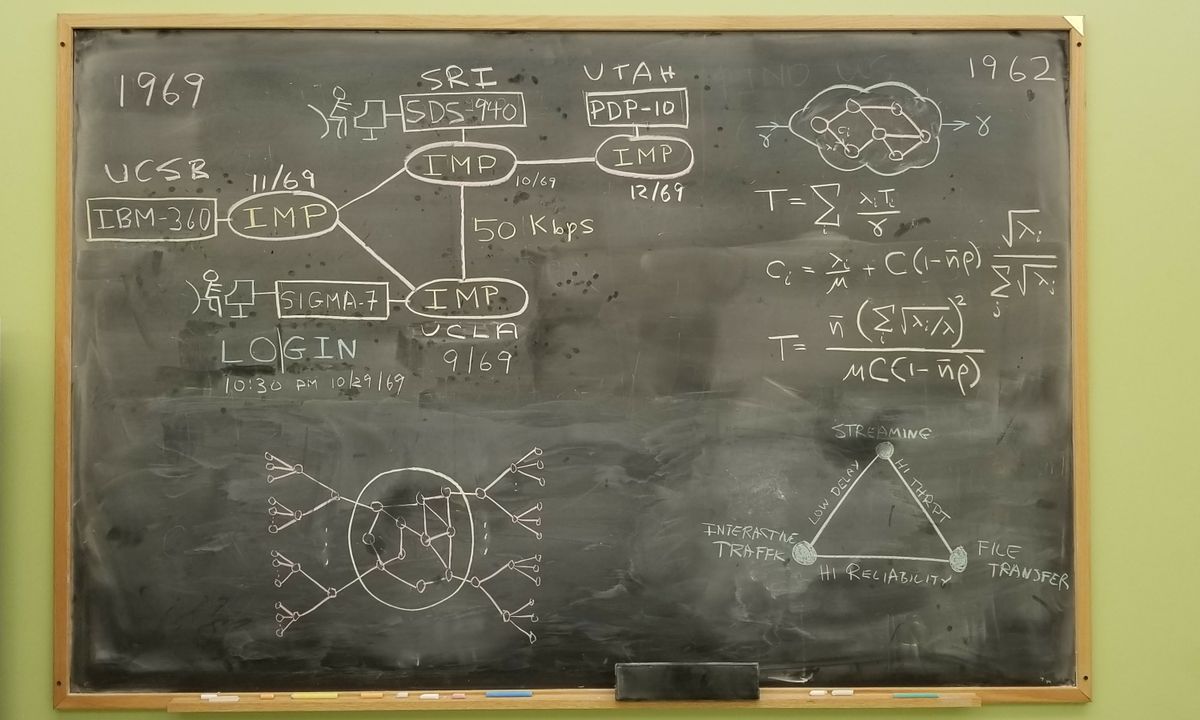 1969
SRI
SDS-940
IMP
10/69
UTAH
PDP-10
IMP
12/69
UCSB
IBM-360
11/69
IMP
50 Kbps
SIGMA-7
IMP
UCLA
9/69
LO|GIN
10:30 PM 10/29/69
1962
γ
γ
T = Σᵢ λᵢTᵢ/γ
Cᵢ = λᵢ/μ + C(1-n̄ρ) √λᵢ / Σⱼ √λⱼ
T = n̄ (Σᵢ √λᵢ/λ)² / μC(1-n̄ρ)
STREAMING
LOW DELAY
HI THRPT
INTERACTIVE
TRAFFIC
HI RELIABILITY
FILE
TRANSFER